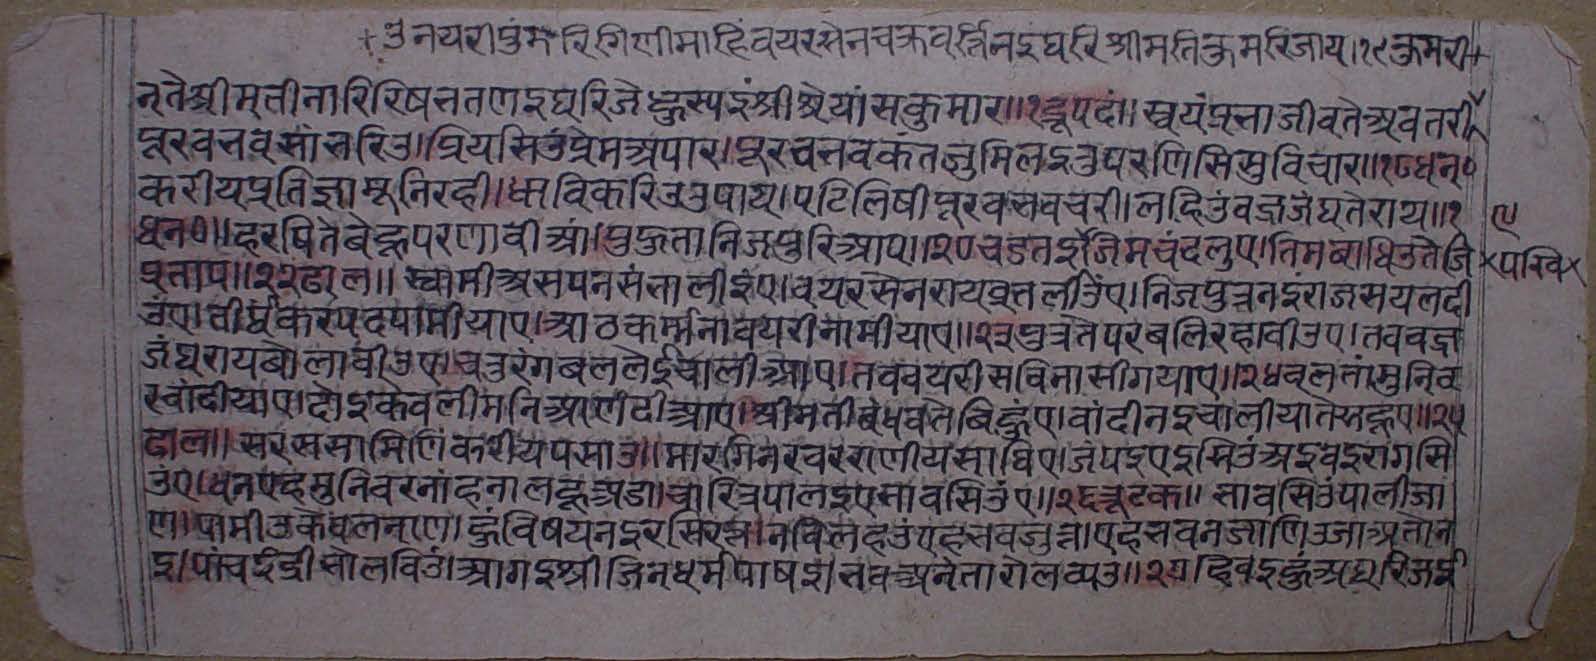 +उ नयरी पुंमरिगिणीमाहिं वयरसेन चक्रवर्त्तिनइ घरि श्रीमति कुमरि जाय।१९ कुमरी+
नृतै श्रीमती नारि रिषभ तणइ घरि जे हुस्यइं श्री श्रेयांसकुमार॥१ द्रूपदं॥ स्वयंप्रभा जीव ते अवतरी
पूरव भव सांभरिउ।प्रिय सिउं प्रेम अपार।पूरव भव कंत जु मिलइ तु परणिसि सुविचार॥१८ धन०
करीय प्रतिज्ञा मूनि रही।धावि करिउ उपाय।पटि लिषी पूरव भव चरी।लहिउं वज्रजंघ ते राय॥१९
धन०॥ हरषि ते बेहू परणावीआ।पुहुता निज पुरि आप॥२० चडत जिम चंदलु ए।तिम वाधिउ तेजि ×परिव×
प्रताप॥२२ ढाल॥ स्वामी अ सपन संभालीइं ए।वयरसेन राय व्रत लीउं ए।निज पुत्रनइं राज सयल दी
उं ए।तीर्थंकर पद पामीया ए।आठ कर्म्मना वयरी नामीया ए॥२३ पुत्र ते परबलि रहावीउ ए।तव वज्र
जंघ राय बोलावीउ ए।चतुरंग बल लेई चालीआ ए।तव वयरी सवि नासी गया ए॥२४ वलतां मुनिव
र वांदीया ए।दोइ केवली मनि आणंदीआ ए।श्रीमती बंधव ते बिहुं ए।वांदीनइ चालीया ते सहू ए॥२५
ढाल॥ सरस सामिणि करीय पसाउ॥ मारगि नरवर राणीय साथि ए।जंपइ ए इसिउं अइ वइरागसि
उं ए।धन एह मुनिवर नांहना लहूअडा।चारित्र पालइ ए भावसिउं ए॥२६ त्रूटक॥ भावसिउं पाली जा
ण।पामीउ केवलनाण।हुं विषयनइ रसि रत्न।नवि लहउं एह भव जुत्त।एह भव न जाणिउ जात्र तोन
इ।पांच इंद्री भोलविउ।आगइ श्री जिनधर्म पाषइ।भव अनंता रोलव्यउ॥२७ हिवइ हुं अ घरि जई